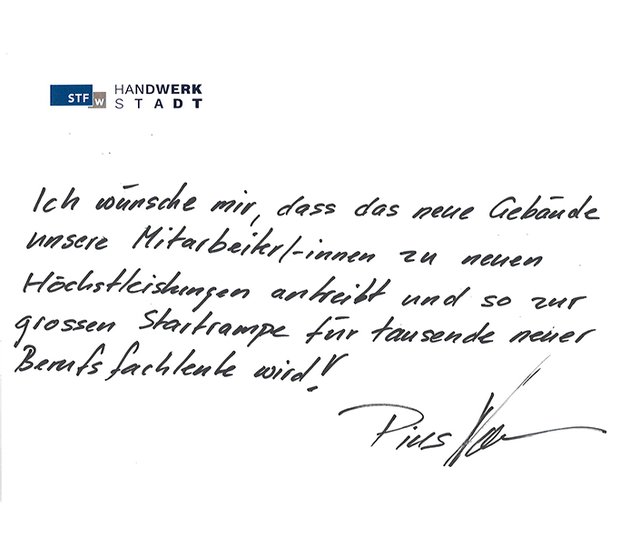 STF W HANDWERK
STADT
Ich wünsche mir, dass das neue Gebäude
unsere Mitarbeiter/-innen zu neuen
Höchstleistungen antreibt und so zur
grossen Startrampe für tausende neuer
Berufsfachleute wird!
Pius